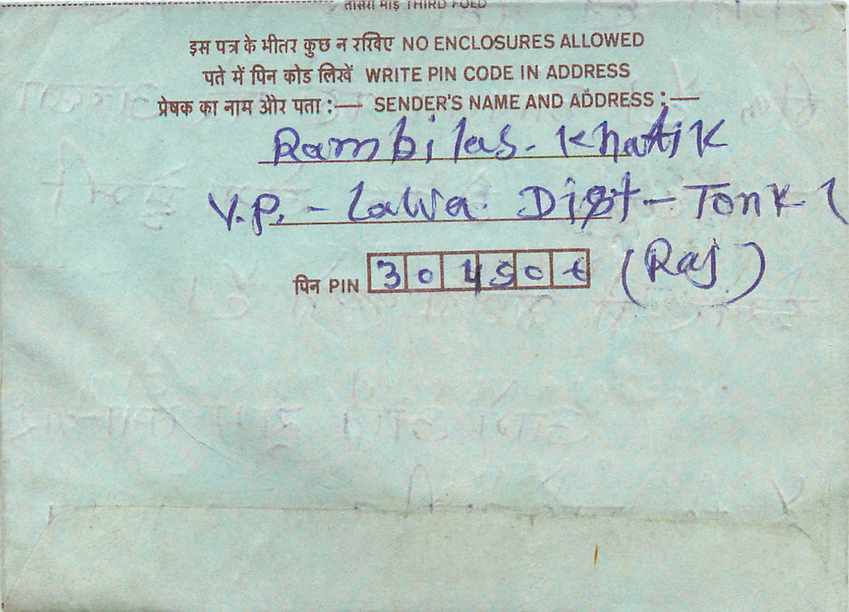 तीसरा मोड़ THIRD FOLD
इस पत्र के भीतर कुछ न रखिए NO ENCLOSURES ALLOWED
पते में पिन कोड लिखें WRITE PIN CODE IN ADDRESS
प्रेषक का नाम और पता :— SENDER'S NAME AND ADDRESS :—
Rambilas. Khatik
V.P. - Lawa. Dist - Tonk (
पिन PIN 304506 (Raj)